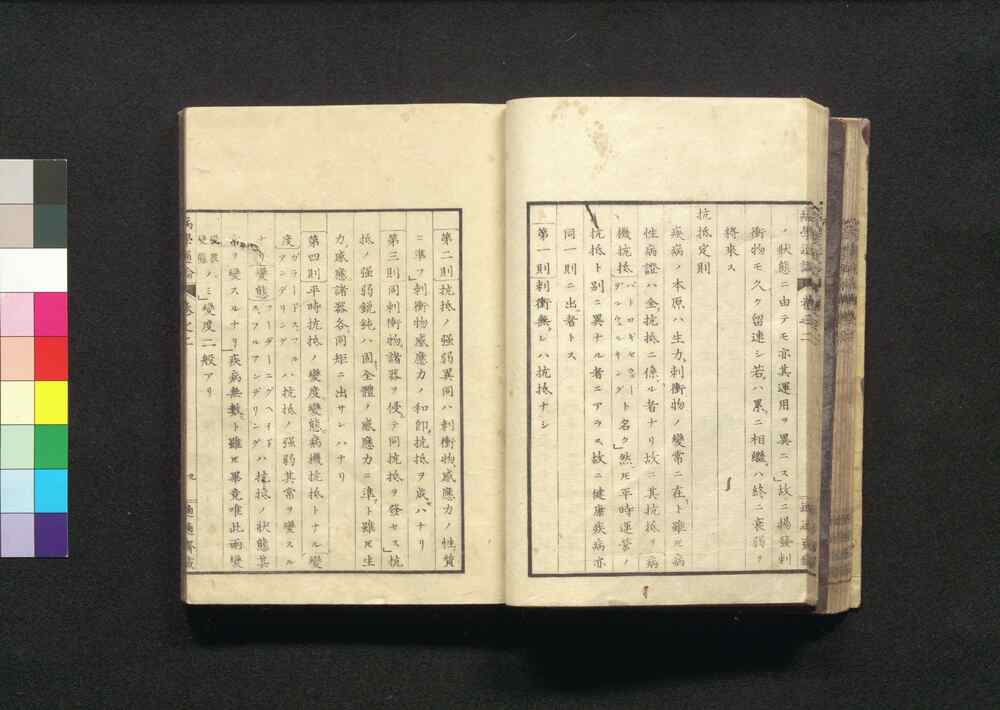 ノ狀態ニ由テモ亦其運用ヲ異ニス」故ニ揚發刺
衝物モ久ク留連シ若ハ累ニ相繼ハ終ニ衰弱ヲ
將來ス
抗抵定則
疾病ノ本原ハ生力刺衝物ノ變常ニ在ト雖𪜈病
性病證ハ全抗抵ニ係ル者ナリ故ニ其抗抵ヲ病
機抗抵ト名ク」然𪜈平時運營ノ
抗抵ト別ニ異ナル者ニアラス故ニ健康疾病亦
同一則ニ出者トス
第一則刺衝無レハ抗抵ナシ
第二則抗抵ノ强弱異同ハ刺衝物感應力ノ性質
ニ準フ」刺衝物感應力ノ和卽抗抵ヲ成ハナリ
第三則同刺衝物諸器ヲ侵テ同抗抵ヲ發セス」抗
抵ノ强弱銳鈍ハ固全體ノ感應力ニ準ト雖𪜈生
力感應諸器各同矩ニ出サレハナリ
第四則平時抗抵ノ變度變態病機抗抵トナル」變
度ハ抗抵ノ强弱其常ヲ變スル
ナリ變態ハ抗抵ノ狀態其
常ヲ變スルナリ」疾病無數ト雖𪜈畢竟唯此兩變
變度二般アリ
病學通論
卷之二
九